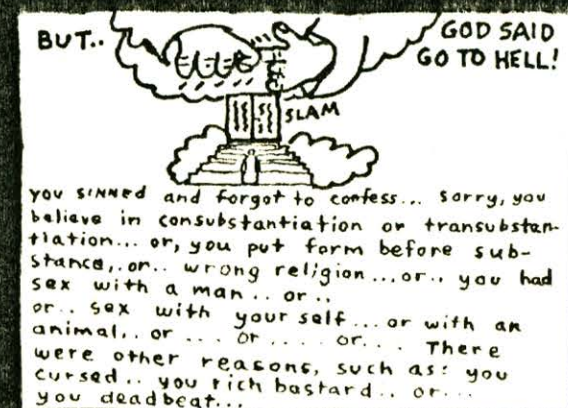 BUT..
GOD SAID
GO TO HELL!
SLAM
you SINNED and forgot to confess... Sorry, you
believe in consubstantiation or transubstan-
tiation... or, you put form before sub-
stance,.or.. wrong religion...or.. you had
sex with a man.. or..
or.. sex with your self... or with an
animal.. or ... or .... or... There
were other reasons, such as: you
cursed.. you rich bastard.. or...
you deadbeat...